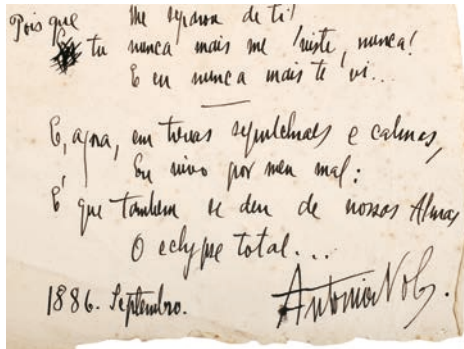 me separou de ti!
Pois que tu nunca mais me viste, nunca!
E eu nunca mais te vi...
E, agora, em trevas sepulchraes e calmas,
Eu vivo por meu mal:
É que tambem se deu de nossas Almas
O eclypse total...
1886. Septembro.
Antonio Nobre.